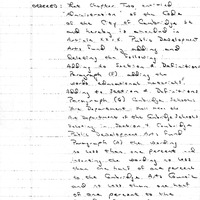 ORDERED: That Chapter Two entitled
Administration of the Code
of the City of Cambridge be
and hereby is amended in
Article XXIX. Public Development
Arts Fund by adding and
deleting the following
Adding to Section 2. Definitions
Paragraph (F) adding the
words educational
Adding to Section 2. Definitions
Paragraph (G) Cambridge Schools
Art Department shall mean the
Art Department of the Cambridge Schools
Deleting in Section 4 Cambridge
Public Development Arts Fund
Paragraph (A) the wording
no less than one percent and
inserting the wording no less
than one half of one percent
to the Cambridge Arts Council
and no less than one half
of one percent to the